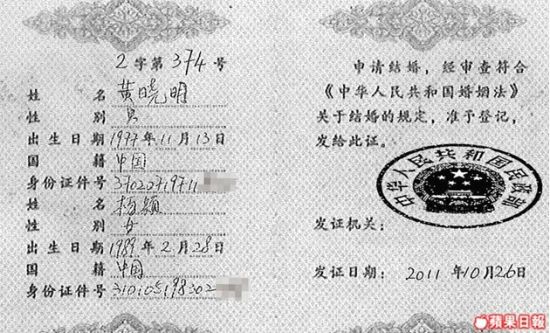 2字第374号
姓名 黄晓明
性别 男
出生日期 1977年11月13日
国籍 中国
身份证件号 370207197711
姓名 杨颖
性别 女
出生日期 1989年2月28日
国籍 中国
身份证件号 310105198902
申请结婚，经审查符合
《中华人民共和国婚姻法》
关于结婚的规定，准予登记，
发给此证。
中华人民共和国民政部
发证机关：
发证日期：2011年10月26日
蘋果日報